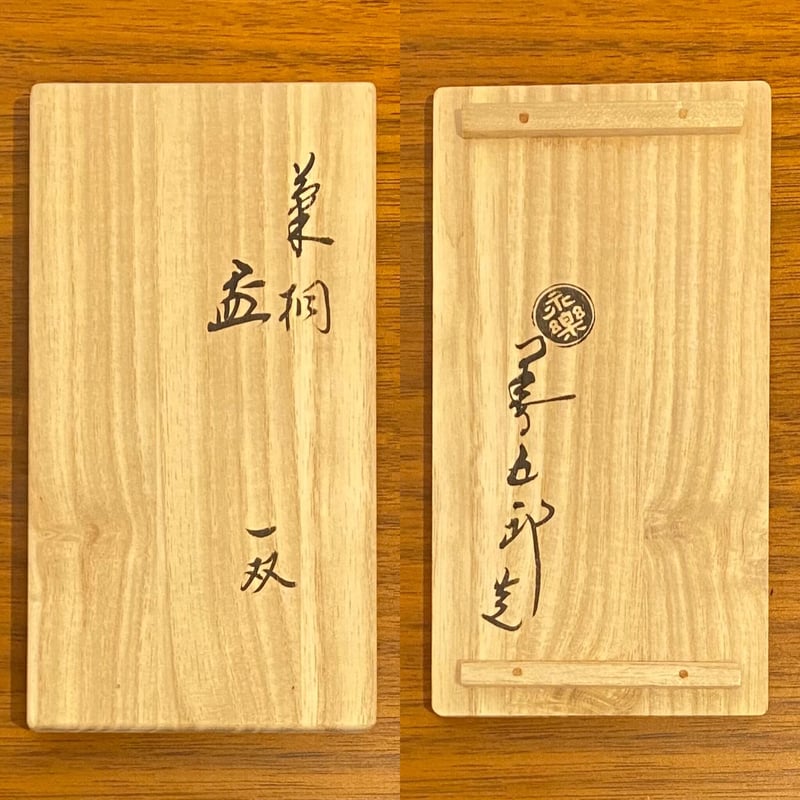 菊桐
盃
一双
永樂
善五郎造